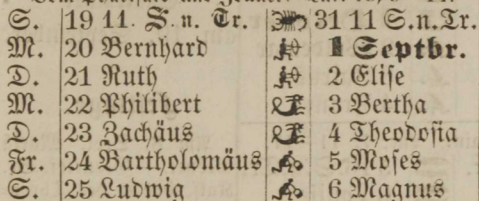 S. 19 11. S. n. Tr. 31 11 S. n. Tr.
M. 20 Bernhard 1 Septbr.
D. 21 Ruth 2 Elise
M. 22 Philibert 3 Bertha
D. 23 Zachäus 4 Theodosia
Fr. 24 Bartholomäus 5 Moses
S. 25 Ludwig 6 Magnus